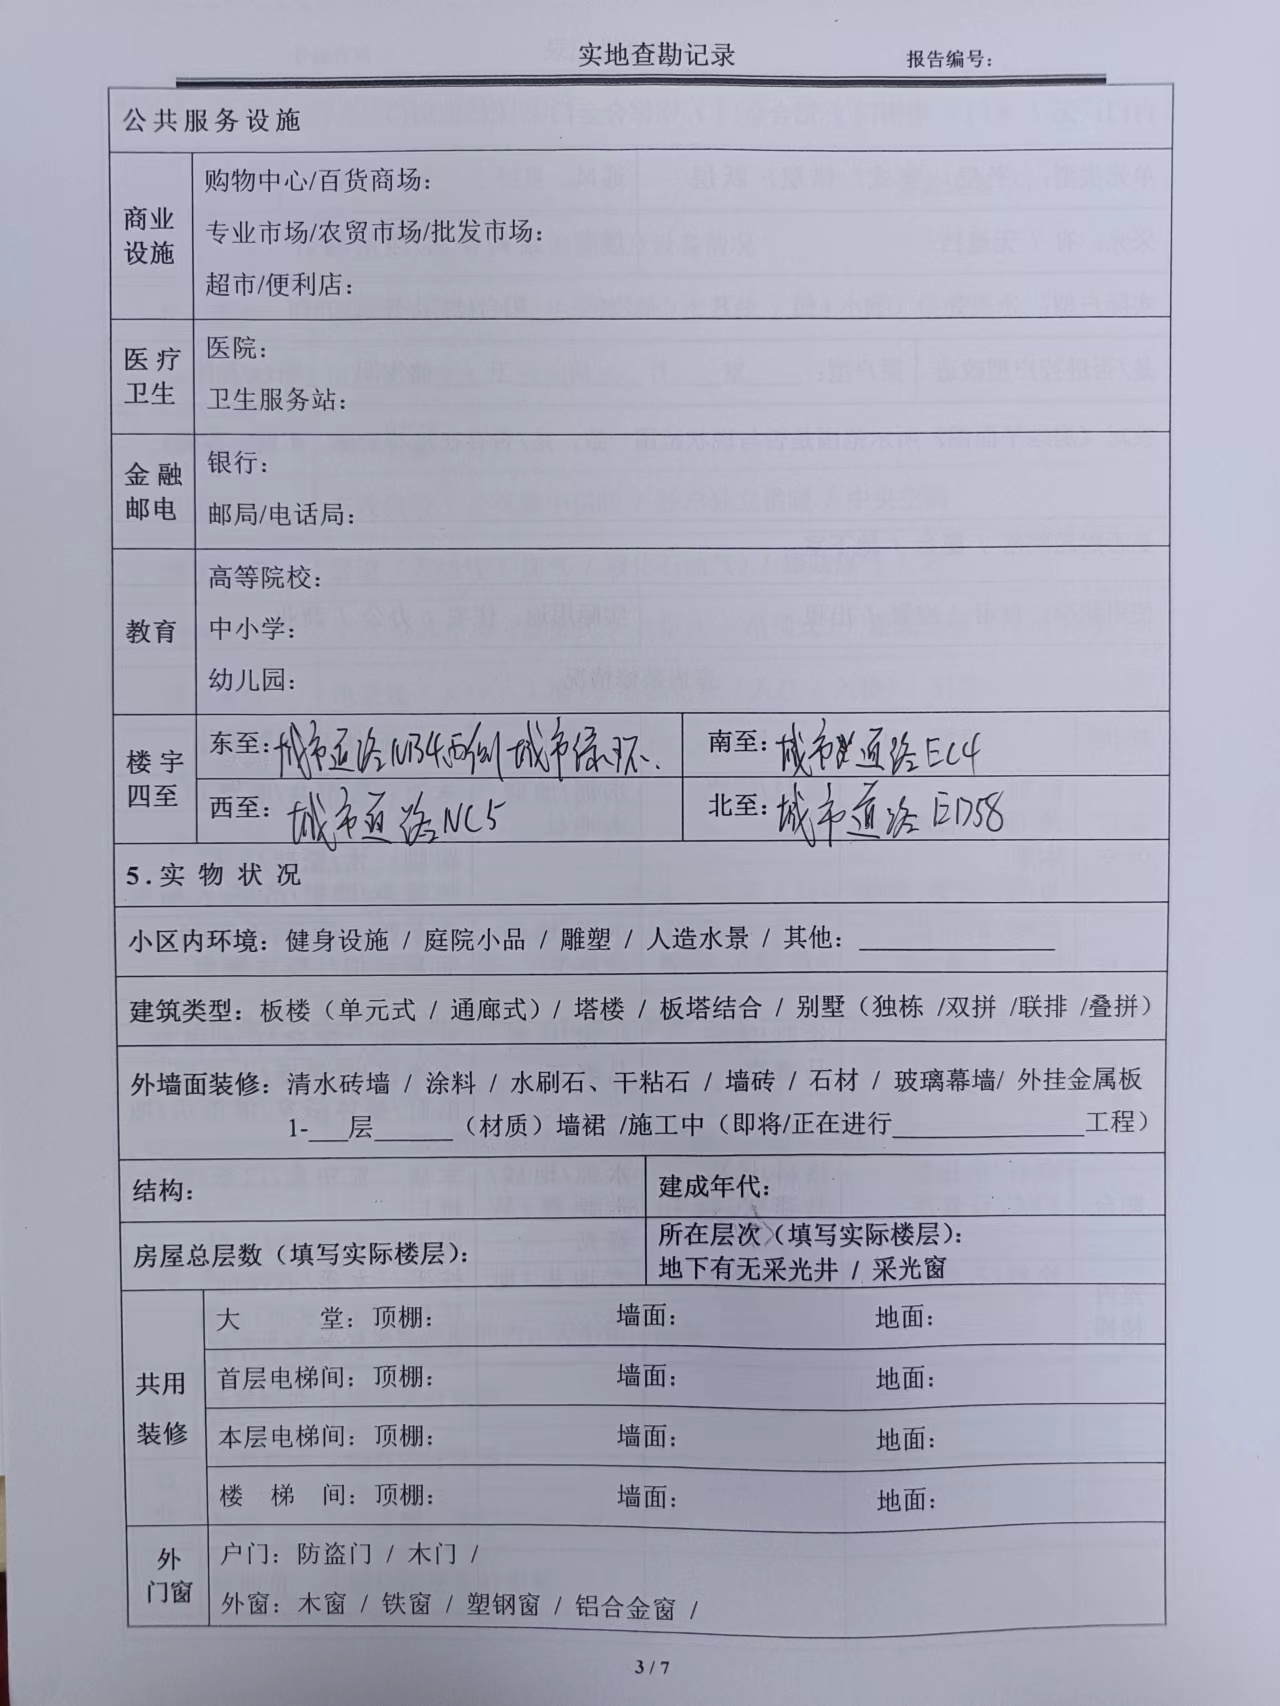 实地查勘记录 报告编号：
公共服务设施
商业设施
购物中心/百货商场：
专业市场/农贸市场/批发市场：
超市/便利店：
医疗卫生
医院：
卫生服务站：
金融邮电
银行：
邮局/电话局：
教育
高等院校：
中小学：
幼儿园：
楼宇四至
东至：城市道路NB34西侧城市绿环. 南至：城市道路EC4
西至：城市道路NC5 北至：城市道路ED58
5.实物状况
小区内环境：健身设施 / 庭院小品 / 雕塑 / 人造水景 / 其他：
建筑类型：板楼（单元式 / 通廊式）/ 塔楼 / 板塔结合 / 别墅（独栋 /双拼 /联排 /叠拼）
外墙面装修：清水砖墙 / 涂料 / 水刷石、干粘石 / 墙砖 / 石材 / 玻璃幕墙/ 外挂金属板
1-___层______（材质）墙裙 /施工中（即将/正在进行_______________工程）
结构： 建成年代：
房屋总层数（填写实际楼层）： 所在层次（填写实际楼层）：
地下有无采光井 / 采光窗
共用装修
大 堂：顶棚： 墙面： 地面：
首层电梯间：顶棚： 墙面： 地面：
本层电梯间：顶棚： 墙面： 地面：
楼 梯 间：顶棚： 墙面： 地面：
外门窗
户门：防盗门 / 木门 /
外窗：木窗 / 铁窗 / 塑钢窗 / 铝合金窗 /
3 / 7